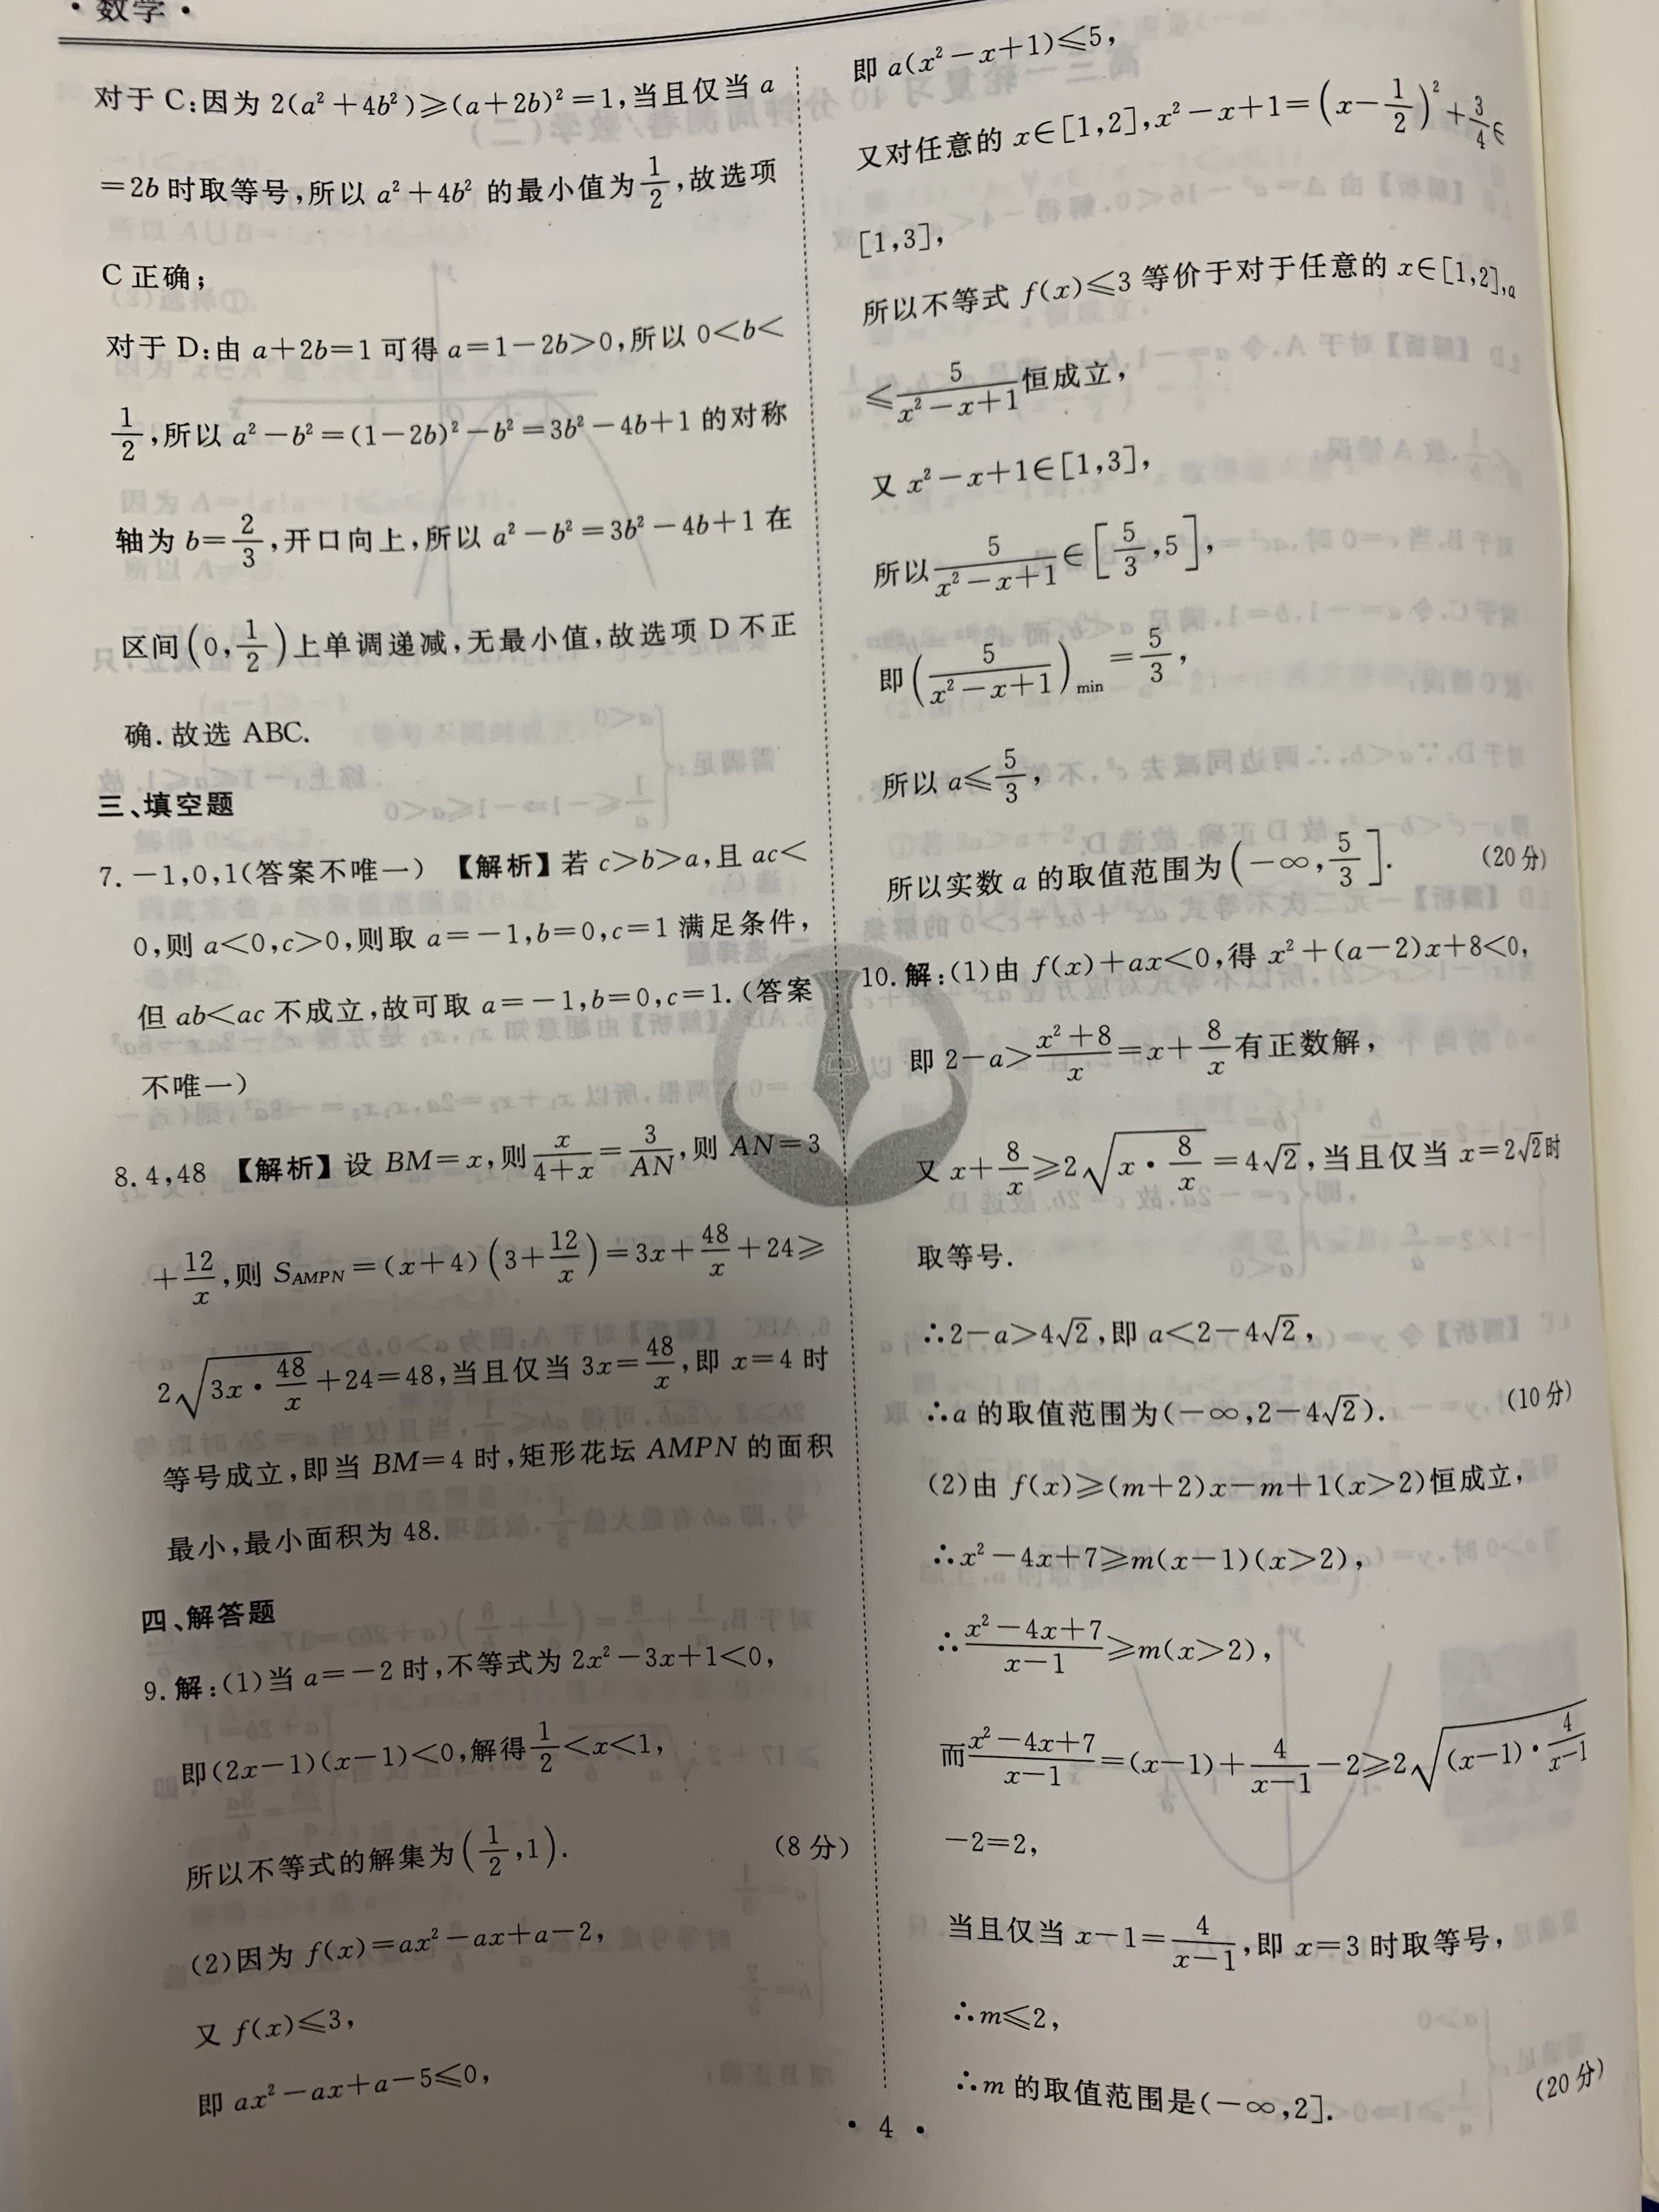 ·数学·
对于 C:因为 2(a²+4b²)≥(a+2b)²=1,当且仅当 a
=2b 时取等号,所以 a²+4b² 的最小值为 1/2,故选项
C 正确;
对于 D:由 a+2b=1 可得 a=1-2b>0,所以 0<b<
1/2,所以 a²-b²=(1-2b)²-b²=3b²-4b+1 的对称
轴为 b=2/3,开口向上,所以 a²-b²=3b²-4b+1 在
区间(0,1/2)上单调递减,无最小值,故选项 D 不正
确.故选 ABC.
三、填空题
7. -1,0,1(答案不唯一) 【解析】若 c>b>a,且 ac<
0,则 a<0,c>0,则取 a=-1,b=0,c=1 满足条件,
但 ab<ac 不成立,故可取 a=-1,b=0,c=1.(答案
不唯一)
8. 4,48 【解析】设 BM=x,则 x/(4+x)=3/AN,则 AN=3
+12/x,则 S_AMPN=(x+4)(3+12/x)=3x+48/x+24≥
2√(3x·48/x)+24=48,当且仅当 3x=48/x,即 x=4 时
等号成立,即当 BM=4 时,矩形花坛 AMPN 的面积
最小,最小面积为 48.
四、解答题
9. 解:(1)当 a=-2 时,不等式为 2x²-3x+1<0,
即(2x-1)(x-1)<0,解得 1/2<x<1,
所以不等式的解集为(1/2,1). (8 分)
(2)因为 f(x)=ax²-ax+a-2,
又 f(x)≤3,
即 ax²-ax+a-5≤0,
即 a(x²-x+1)≤5,
又对任意的 x∈[1,2],x²-x+1=(x-1/2)²+3/4∈
[1,3],
所以不等式 f(x)≤3 等价于对于任意的 x∈[1,2],a
≤5/(x²-x+1)恒成立,
又 x²-x+1∈[1,3],
所以 5/(x²-x+1)∈[5/3,5],
即(5/(x²-x+1))min=5/3,
所以 a≤5/3,
所以实数 a 的取值范围为(-∞,5/3]. (20 分)
10. 解:(1)由 f(x)+ax<0,得 x²+(a-2)x+8<0,
即 2-a>(x²+8)/x=x+8/x 有正数解,
又 x+8/x≥2√(x·8/x)=4√2,当且仅当 x=2√2时
取等号.
∴2-a>4√2,即 a<2-4√2,
∴a 的取值范围为(-∞,2-4√2). (10 分)
(2)由 f(x)≥(m+2)x-m+1(x>2)恒成立,
∴x²-4x+7≥m(x-1)(x>2),
∴(x²-4x+7)/(x-1)≥m(x>2),
而(x²-4x+7)/(x-1)=(x-1)+4/(x-1)-2≥2√((x-1)·4/(x-1))
-2=2,
当且仅当 x-1=4/(x-1),即 x=3 时取等号,
∴m≤2,
∴m 的取值范围是(-∞,2]. (20 分)
· 4 ·